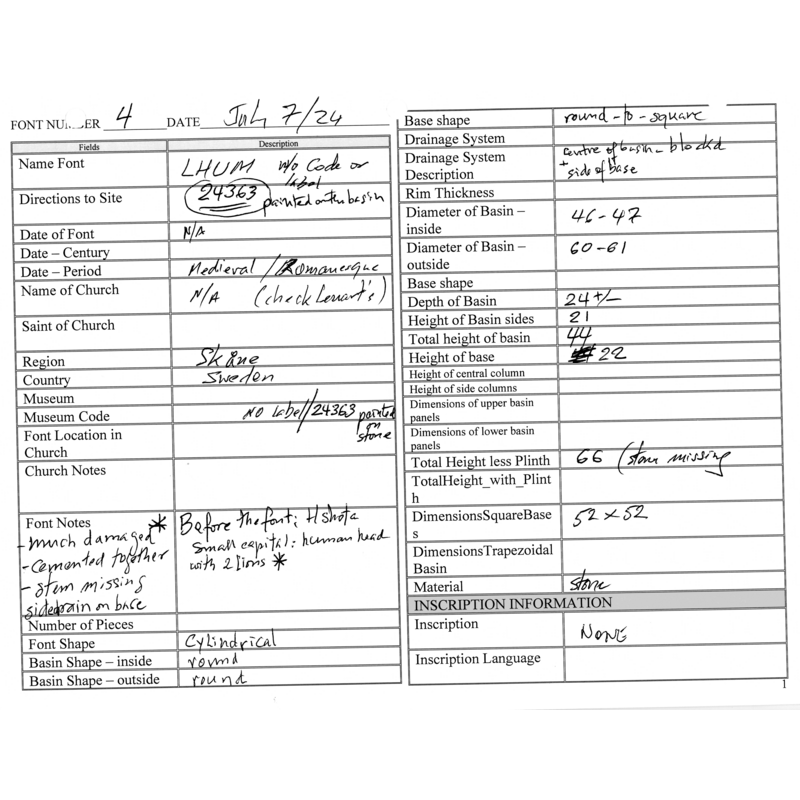 FONT NUMBER 4 DATE July 7/24
Fields Description
Name Font LHUM w/o Code or
label
Directions to Site 24363 painted on the basin
Date of Font N/A
Date – Century
Date – Period Medieval / Romanesque
Name of Church N/A (check Lennart's)
Saint of Church
Region Skåne
Country Sweden
Museum
Museum Code NO label/24363 painted
on
stone
Font Location in
Church
Church Notes
Font Notes * Before the font: H shota
- much damaged small capital: human head
- cemented together with 2 lions *
- stem missing
side drain on base
Number of Pieces
Font Shape Cylindrical
Basin Shape – inside round
Basin Shape – outside round
Base shape round-to-square
Drainage System
Drainage System centre of basin - blockd
Description + side of base
Rim Thickness
Diameter of Basin – 46-47
inside
Diameter of Basin – 60-61
outside
Base shape
Depth of Basin 24 +/-
Height of Basin sides 21
Total height of basin 44
Height of base 22
Height of central column
Height of side columns
Dimensions of upper basin
panels
Dimensions of lower basin
panels
Total Height less Plinth 66 (stem missing
TotalHeight_with_Plint
h
DimensionsSquareBase 52 x 52
s
DimensionsTrapezoidal
Basin
Material stone
INSCRIPTION INFORMATION
Inscription NONE
Inscription Language
1